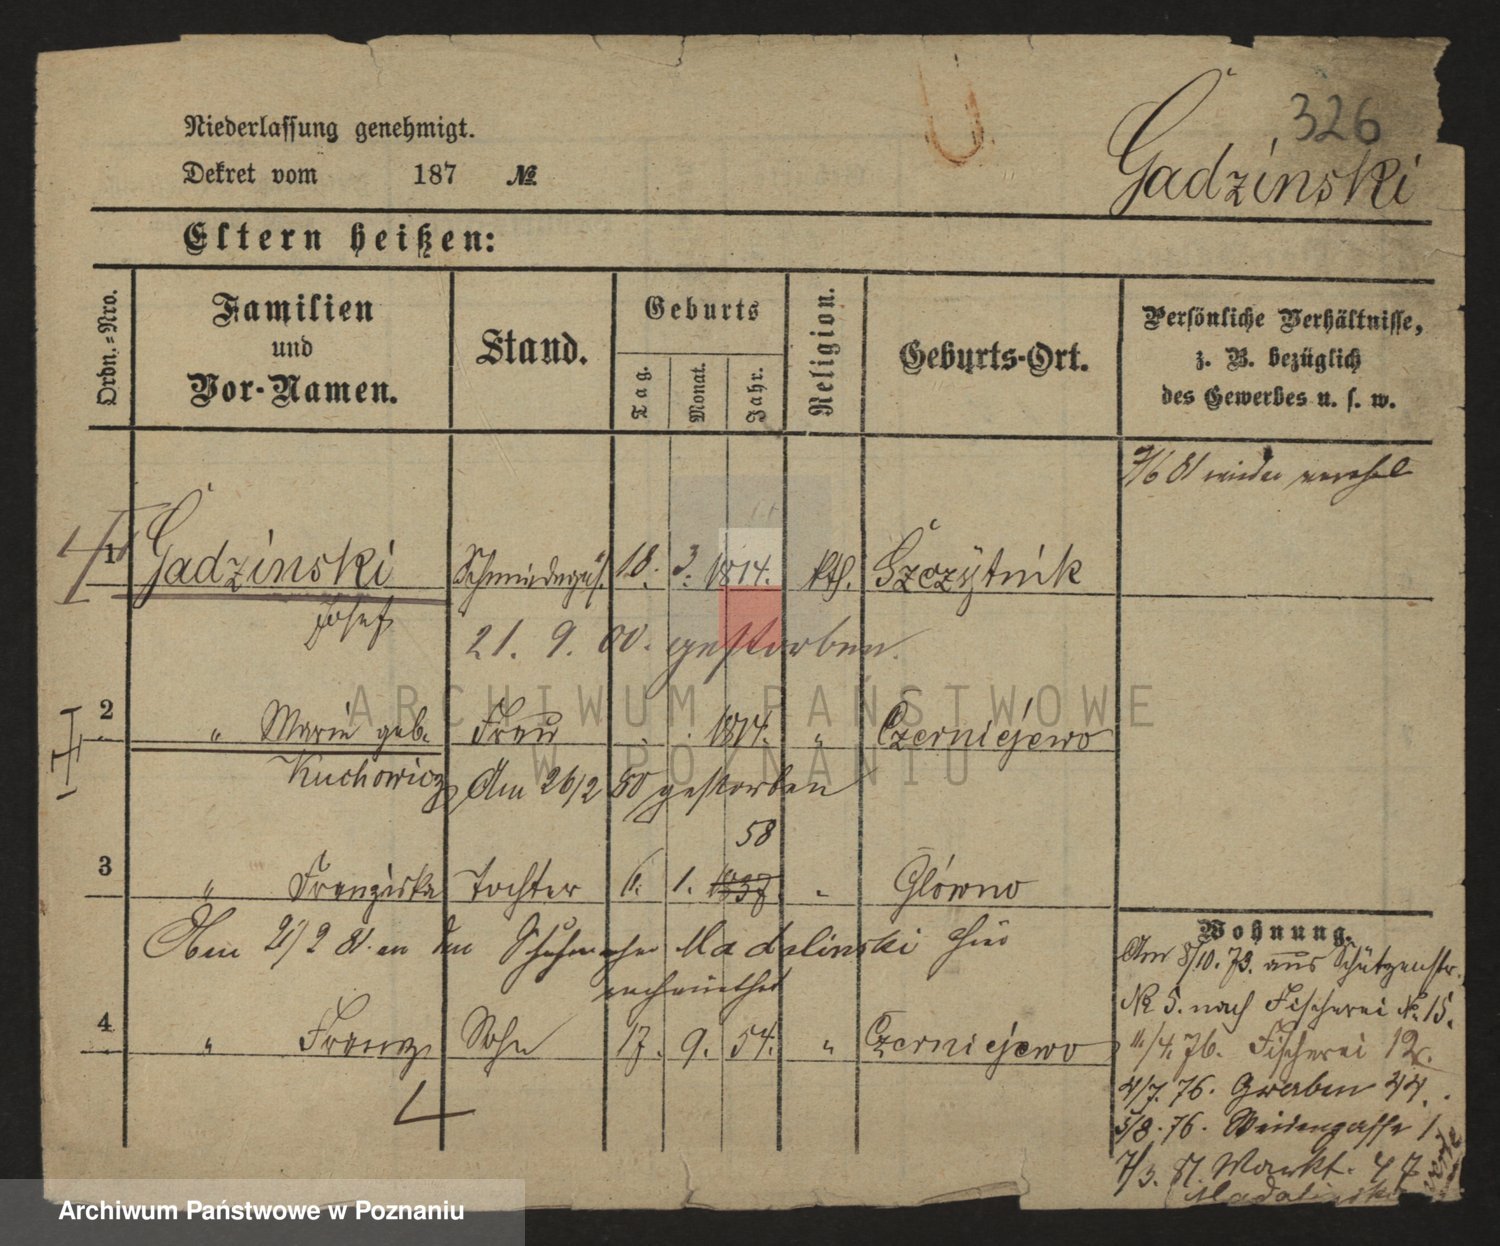 326
Gadzinski
Niederlassung genehmigt.
Dekret vom 187 №
Eltern heißen:
Ordn.=Nro.
Familien
und
Vor-Namen.
Stand.
Geburts
Tag.
Monat.
Jahr.
Religion.
Geburts-Ort.
Persönliche Verhältnisse,
z. B. bezüglich
des Gewerbes u. s. w.
1 Gadzinski 18. 3. 1814. kth.
Josef
21. 9. 00. gestorben.
2 " Marie geb. Frau 1814. " Czerniejewo
Kuchowicz Am 26/2 80 gestorben
58
3 " Franziska Tochter 6. 1. 1837 " Główno
2/2 81. an den Schuhmacher Madalinski hier
verheirathet
4 " Franz Sohn 17. 9. 54. " Czerniejewo
Wohnung.
Am 8/10. 73. aus Schützenstr.
№ 5. nach Fischerei № 15.
11/4. 76. Fischerei 12
4/7. 76. Graben 44.
5/8. 76. Weidengasse 1
7/3. 81. Markt. 47
Madalinski
ARCHIWUM PAŃSTWOWE
W POZNANIU
Archiwum Państwowe w Poznaniu